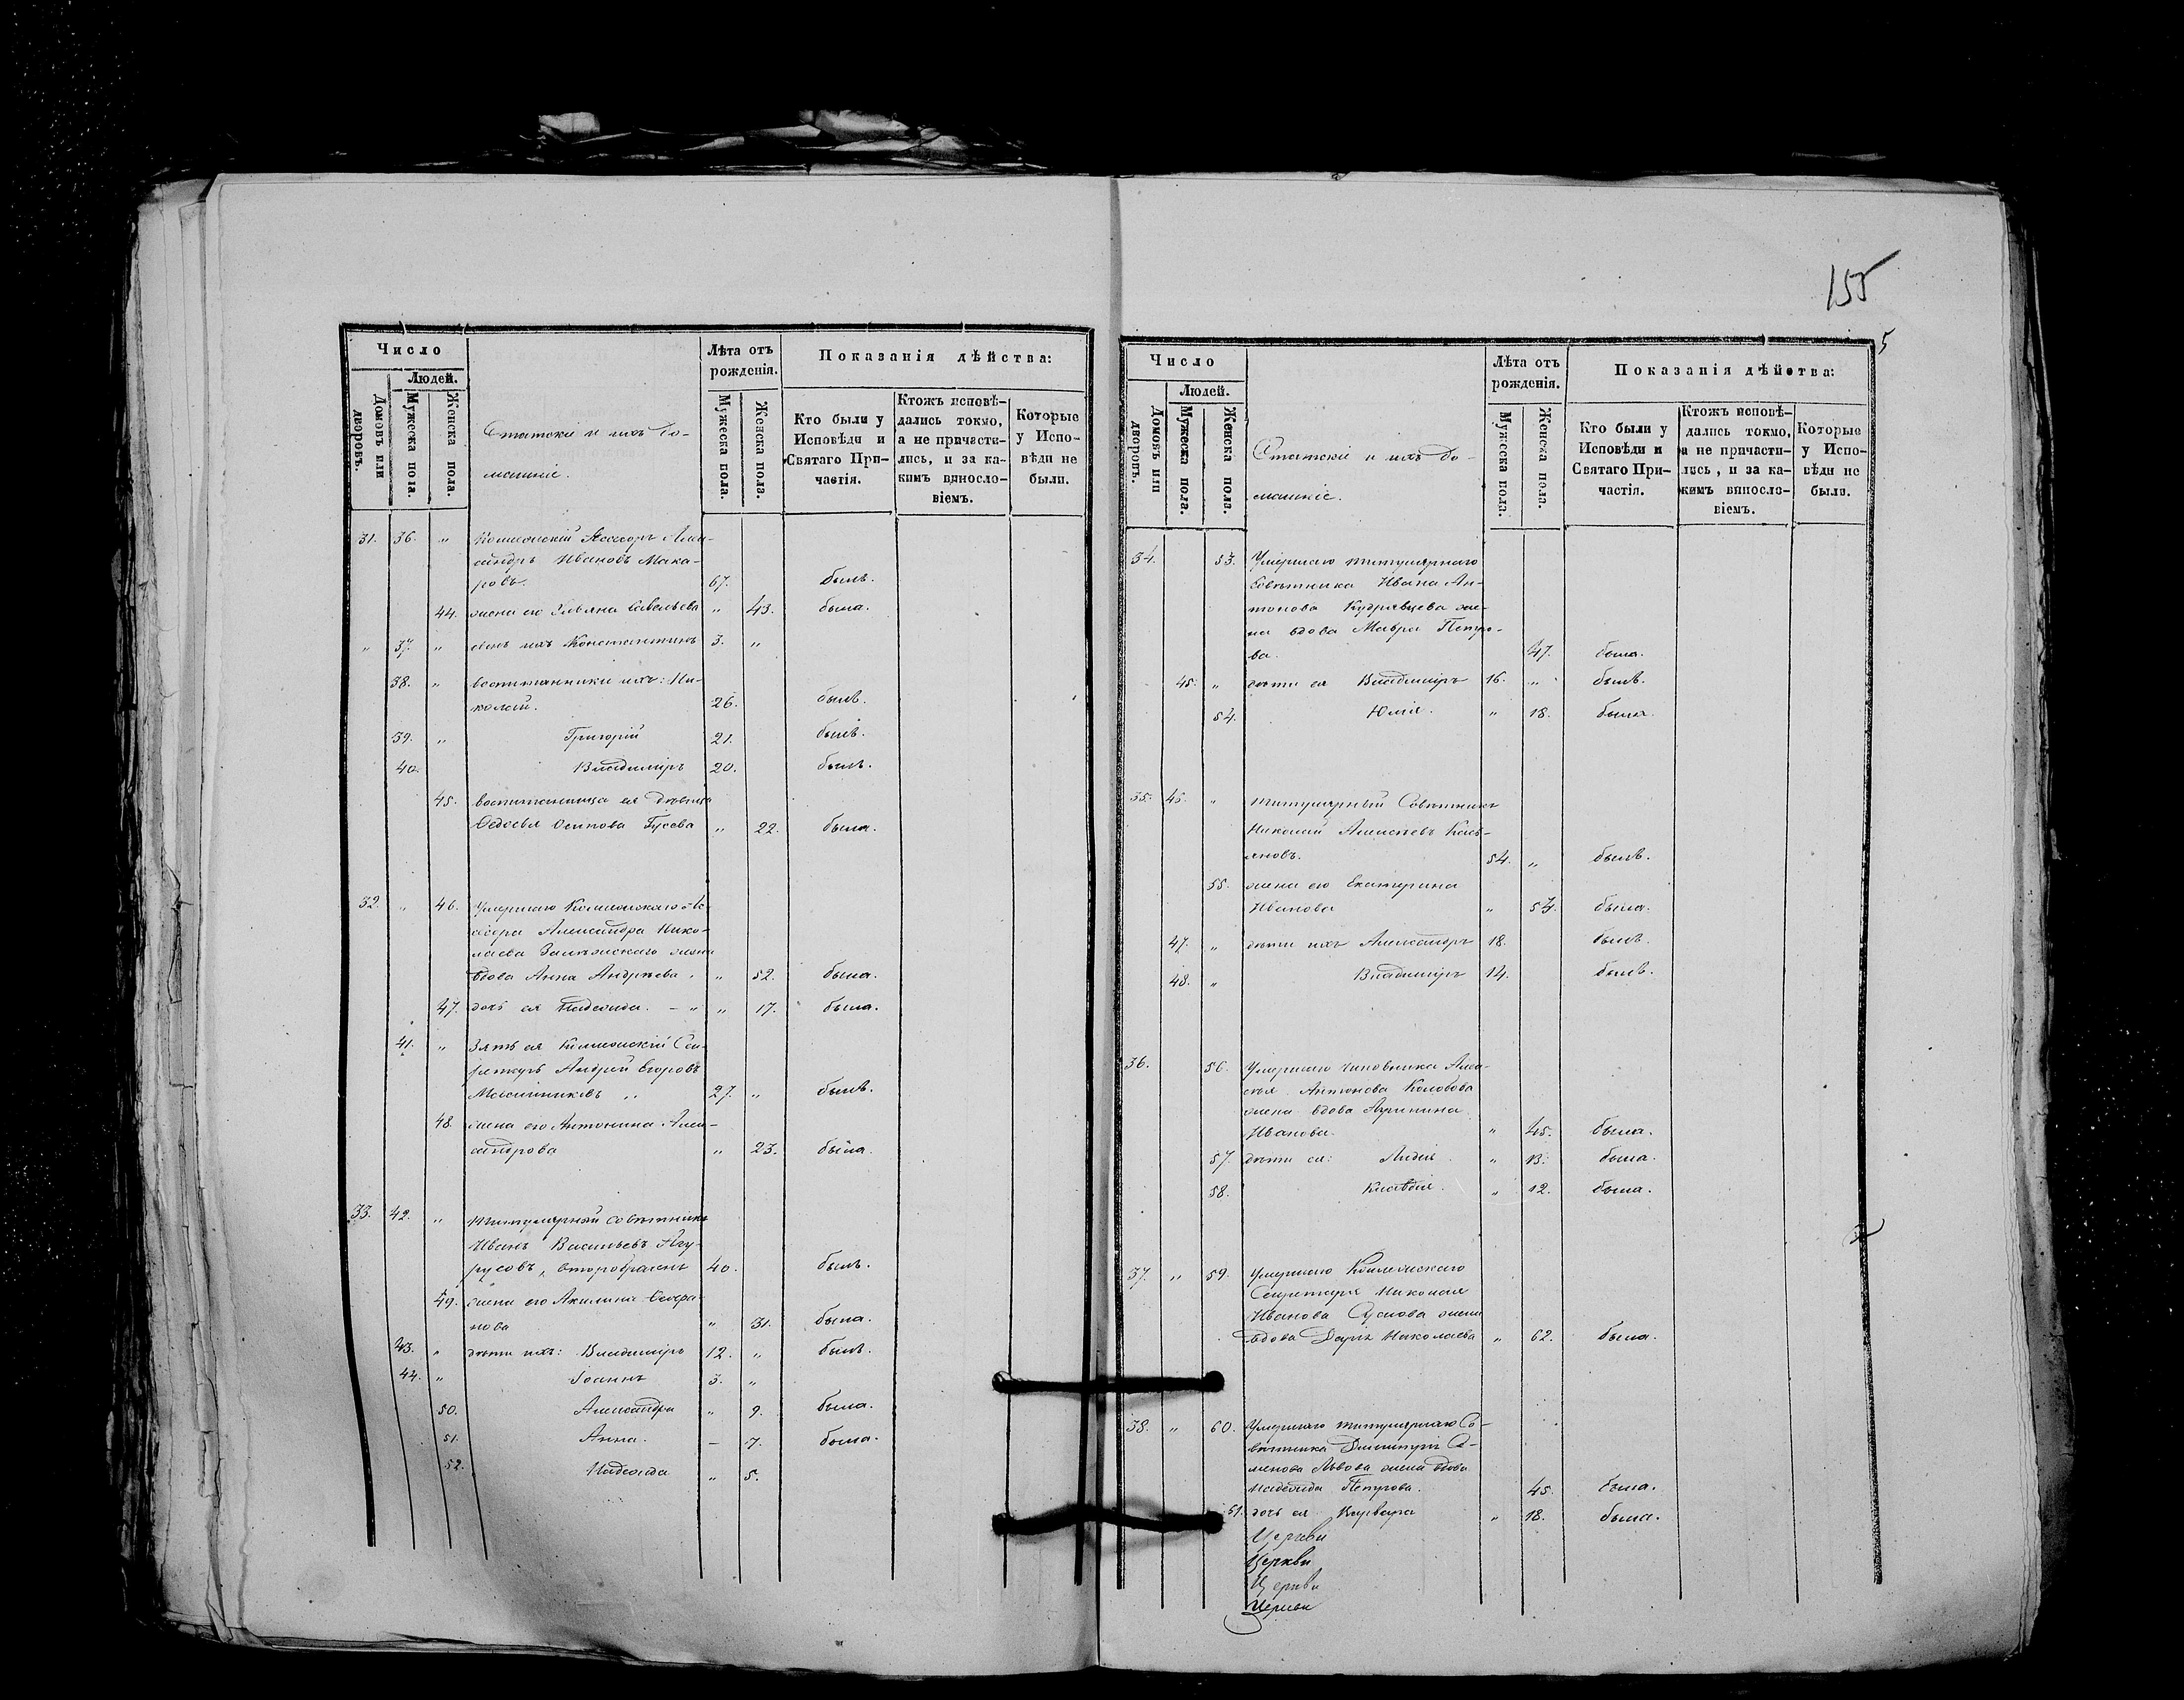 155
5
Число
Людей.
Домовъ или дворовъ.
Мужеска пола.
Женска пола.
Статскіе и ихъ до-
машніе.
Лѣта отъ
рожденія.
Мужеска пола.
Женска пола.
Показанія дѣйства:
Кто были у
Исповѣди и
Святаго При-
частія.
Ктожъ исповѣ-
дались токмо,
а не причасти-
лись, и за ка-
кимъ виносло-
віемъ.
Которые
у Испо-
вѣди не
были.
31. 36. „ Коллежскій Ассесоръ Алек-
сандръ Ивановъ Мака-
ровъ. 67. былъ.
44. жена его Ульяна Савельева „ 43. была.
„ 37. „ сынъ ихъ Константинъ 3. „
38. „ воспитанники ихъ: Ни-
колай. 26. былъ.
39. „ Григорій 21. былъ.
40. Владиміръ 20. былъ.
45. воспитанница ея дѣвица
Федосья Осипова Гусева „ 22. была.
32. „ 46. Умершаго Коллежскаго Ас-
сесора Александра Нико-
лаева жена
вдова Анна Андреева „ „ 52. была.
47. дочь ея Надежда. – „ „ 17. была.
41. „ Зять ея Коллежскій Сек-
ретарь Андрей Егоровъ
27. „ былъ.
48. жена его Антонина Алек-
сандрова „ 23. была.
33. 42. „ Титулярный Совѣтникъ
Иванъ Васильевъ Агу-
русовъ, второбрачен 40. былъ.
49. жена его Акилина
нова „ 31. была.
43. „ дѣти ихъ: Владиміръ 12. „ былъ.
44. „ Іоаннъ 3. „
50. Александра „ 9. была.
51. Анна. – 7. была.
52. Надежда „ 5.
Число
Людей.
Домовъ или дворовъ.
Мужеска пола.
Женска пола.
Статскіе и ихъ до-
машніе.
Лѣта отъ
рожденія.
Мужеска пола.
Женска пола.
Показанія дѣйства:
Кто были у
Исповѣди и
Святаго При-
частія.
Ктожъ исповѣ-
дались токмо,
а не причасти-
лись, и за ка-
кимъ виносло-
віемъ.
Которые
у Испо-
вѣди не
были.
34. 53. Умершаго титулярнаго
Совѣтника Ивана Ан-
тонова Кудрявцева же-
на вдова Мавра Петро-
ва. 47. была.
45. „ дѣти ея Владиміръ 16. „ былъ.
54. Юлія. „ 18. была.
35. 46. „ титулярный Совѣтникъ
Николай Алексѣевъ Кась-
яновъ. 54. „ былъ.
55. жена его Екатерина
Иванова „ 54. была.
47. „ дѣти ихъ Александръ 18. былъ.
48. „ Владиміръ 14. былъ.
36. 56. Умершаго чиновника Алек-
сѣя Антонова Колобова
жена вдова Агрипина
Иванова. „ 45. была.
57. дѣти ея: Лидія. „ 13. была.
58. Клавдія. „ 12. была.
37. „ 59. Умершаго Коллежскаго
Секретаря Николая
Иванова жена
вдова Дарья Николаева „ 62. была.
38. „ 60. Умершаго титулярнаго Со-
вѣтника Димитрія Се-
менова Львова жена вдова
Надежда Петрова. 45. была.
61. дочь ея Варвара „ 18. была.
Церкви
Церкви
Церкви
Церкви